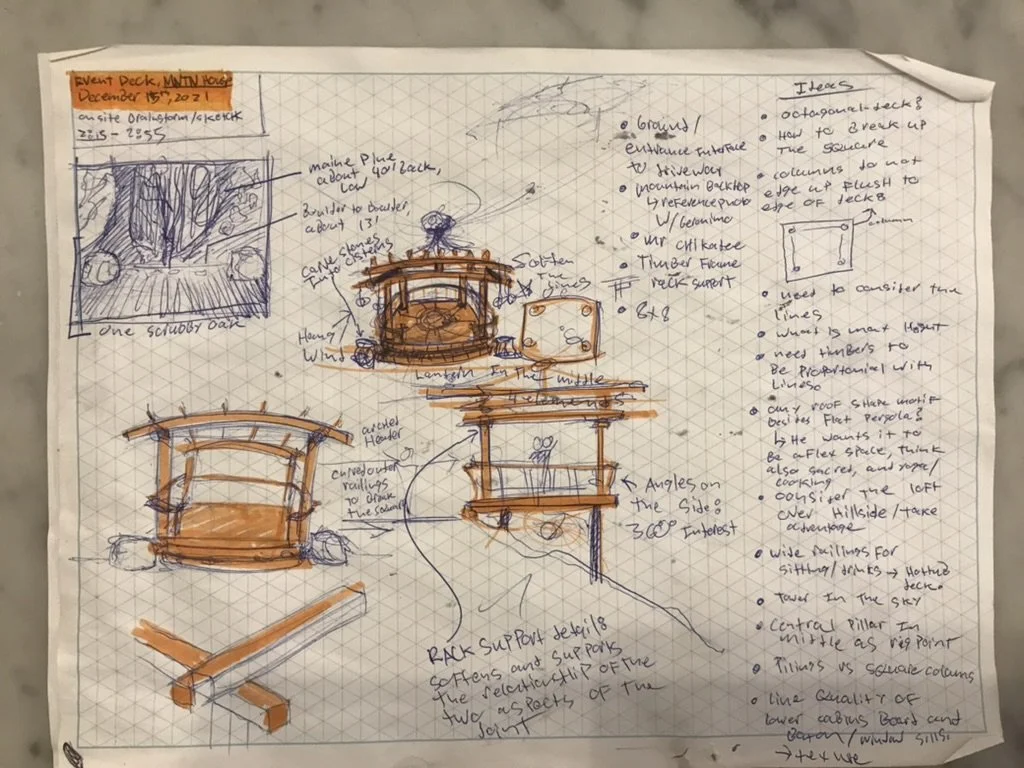 Event Deck, MNTN House
December 15th, 2021
onsite Brainstorm/sketch
2015 - 2055
maine Pine
about 40' Back,
Low
Boulder to Boulder,
about 13'
one scrubby oak
carve stones
Into cisterns
Soften
The
lines
Hang
Wind
Lantern In The middle
4 elements
arched
Header
curved outer
railings
to Break
the square
Angles on
The Side:
360° Interest
RACK SUPPORT details
softens and supports
the relationship of the
two aspects of the
Joint
• Ground/
entrance Interface
to driveway
• mountain Backtop
↳ reference photo
w/Geronimo
• Mr Chikatee
• Timber Frame
rack support
• 8x8
Ideas
• octagonal deck?
• How to Break up
The square
• columns do not
edge up flush to
edge of deck
column
• need to consider the
lines
• what is max Height
• need timbers to
Be proportional with
Lines.
• any roof shape motif
besides Flat Pergola?
↳ He wants it to
Be a Flex space, think
also sacred, and yoga/
cooking
• consider the loft
over Hillside/take
advantage
• wide railings for
sitting/drinks → Hottub
deck.
• Tower In The Sky
• Central Pillar In
middle as rig point
• Pilings vs square columns
• Line Quality of
lower cabins Board and
Baton/window sills
→ texture